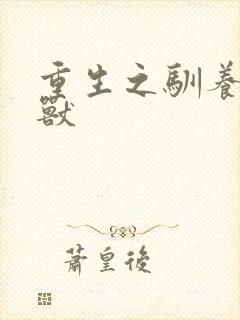 重生之馴養
獸
蕭皇後